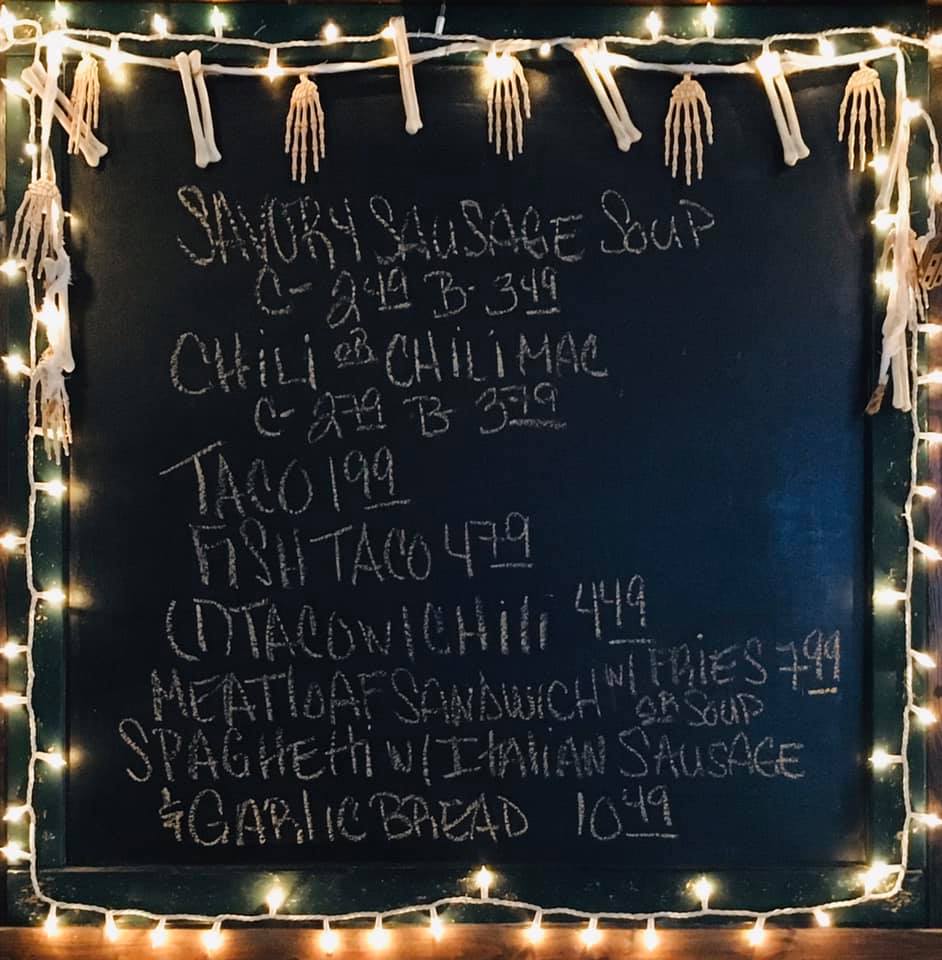 SAVORY SAUSAGE SOUP
C- 2 49 B- 3 49
CHiLi OR CHiLi MAC
C- 2 79 B- 3 79
TACO 1 99
FiSH TACO 4 79
(1) TACO W/ CHili 4 49
MEATLOAF SANDWICH W/ FRiES OR SOUP 7 99
SPAGHETTi W/ ITALIAN SAUSAGE
& GARlic BREAD 10 49